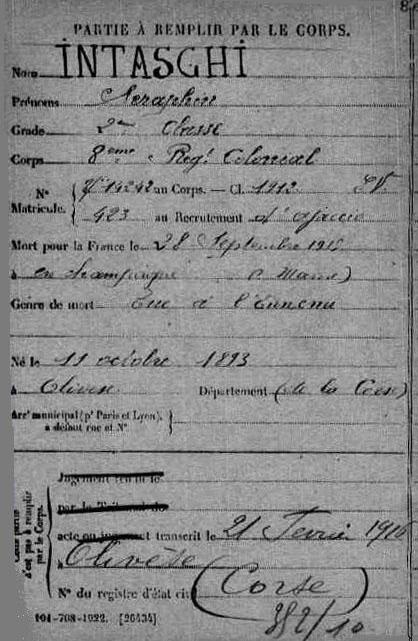 PARTIE À REMPLIR PAR LE CORPS.
Nom INTASGHI
Prénoms
Grade 2me Classe
Corps 8eme Regt Colonial
No Matricule. 14242 au Corps. — Cl. 1912 EV.
423 au Recrutement d'ajaccio
Mort pour la France le 28 Septembre 1915
à en champagne (Marne)
Genre de mort Tué à l'Ennemi
Né le 11 octobre 1893
à Olivese Département (de la Corse)
Arrt municipal (pr Paris et Lyon), à défaut rue et No.
Cette partie n'est pas à remplir par le Corps.
Jugement rendu le
par le Tribunal de
acte ou jugement transcrit le 21 Fevrier 1916
à Olivese
No du registre d'état civil (Corse
101-708-1922. [26434] 382/10